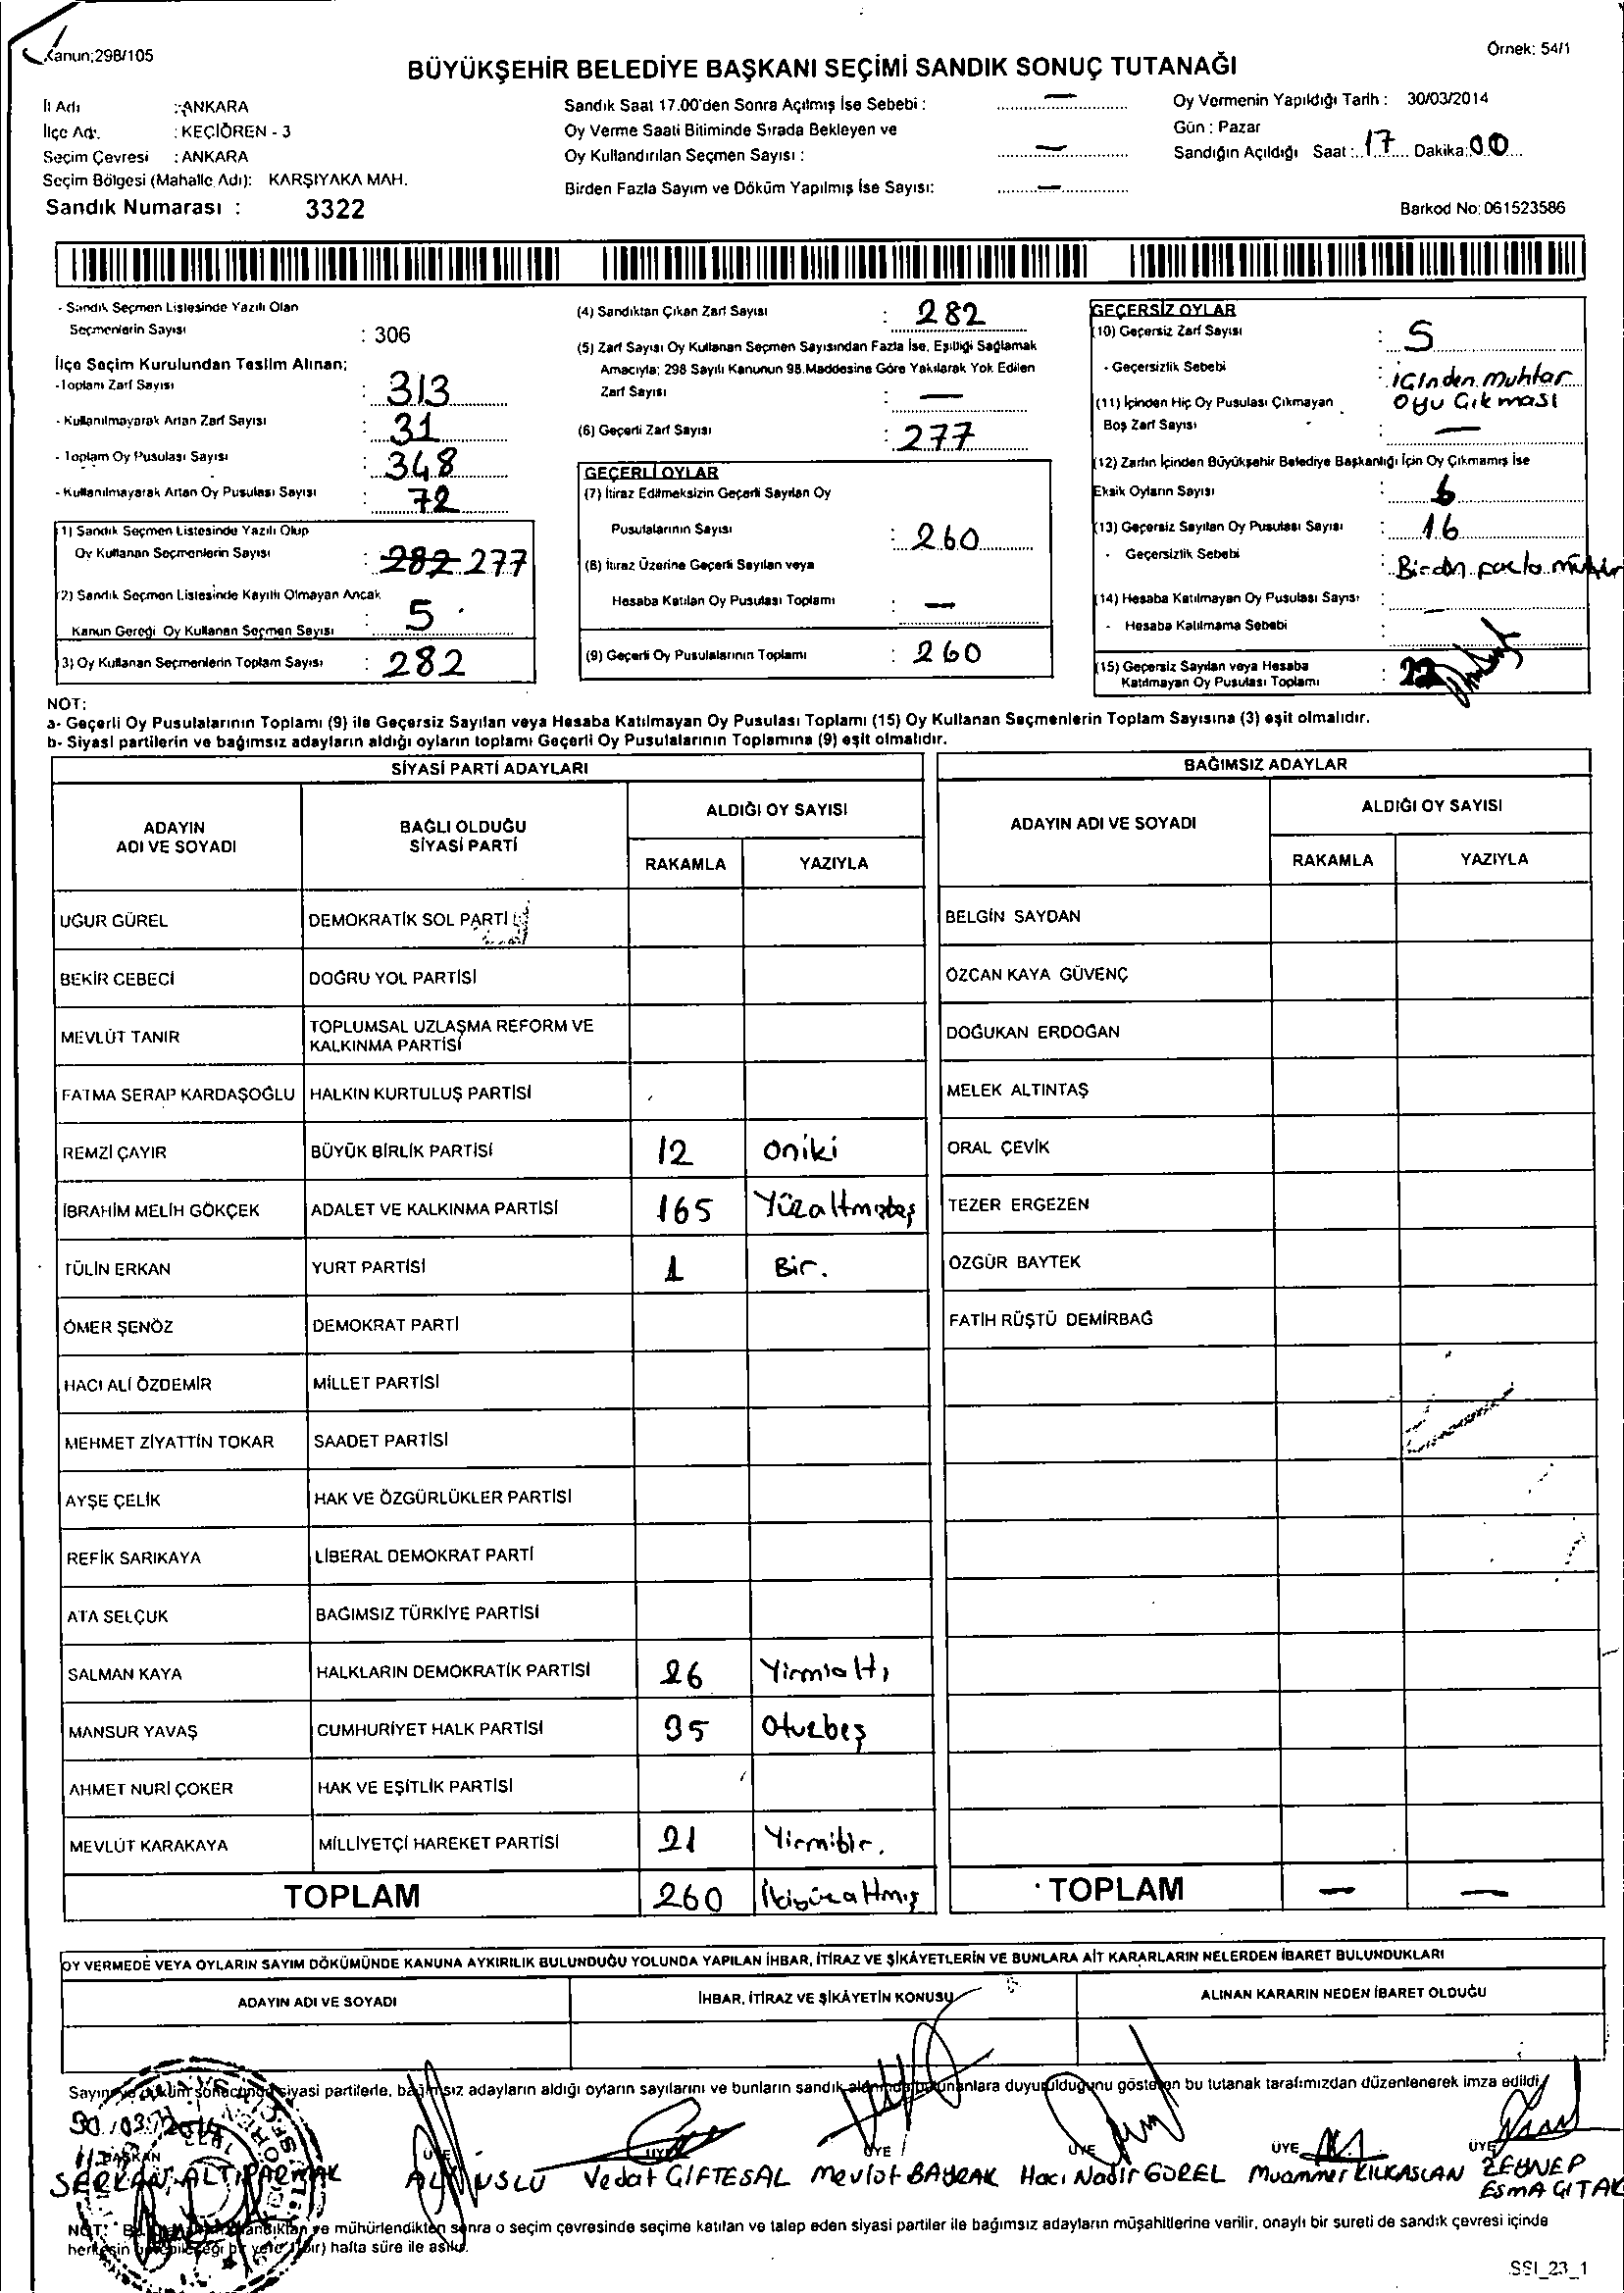 Kanun;298/105
Örnek: 54/1
BÜYÜKŞEHİR BELEDİYE BAŞKANI SEÇİMİ SANDIK SONUÇ TUTANAĞI
İl Adı : ANKARA
İlçe Adı : KEÇİÖREN - 3
Seçim Çevresi : ANKARA
Seçim Bölgesi (Mahalle Adı): KARŞIYAKA MAH.
Sandık Numarası : 3322
Sandık Saat 17.00'den Sonra Açılmış İse Sebebi : —
Oy Verme Saati Bitiminde Sırada Bekleyen ve
Oy Kullandırılan Seçmen Sayısı : —
Birden Fazla Sayım ve Döküm Yapılmış İse Sayısı: —
Oy Vermenin Yapıldığı Tarih : 30/03/2014
Gün : Pazar
Sandığın Açıldığı Saat : 17 Dakika: 00
Barkod No: 061523586
- Sandık Seçmen Listesinde Yazılı Olan
Seçmenlerin Sayısı : 306
İlçe Seçim Kurulundan Teslim Alınan;
- Toplam Zarf Sayısı : 313
- Kullanılmayarak Artan Zarf Sayısı : 31
- Toplam Oy Pusulası Sayısı : 348
- Kullanılmayarak Artan Oy Pusulası Sayısı : 72
(1) Sandık Seçmen Listesinde Yazılı Olup
Oy Kullanan Seçmenlerin Sayısı : 282 277
(2) Sandık Seçmen Listesinde Kayıtlı Olmayan Ancak
Kanun Gereği Oy Kullanan Seçmen Sayısı : 5
(3) Oy Kullanan Seçmenlerin Toplam Sayısı : 282
(4) Sandıktan Çıkan Zarf Sayısı : 282
(5) Zarf Sayısı Oy Kullanan Seçmen Sayısından Fazla İse, Eşitliği Sağlamak
Amacıyla; 298 Sayılı Kanunun 98.Maddesine Göre Yakılarak Yok Edilen
Zarf Sayısı : —
(6) Geçerli Zarf Sayısı : 277
GEÇERLİ OYLAR
(7) İtiraz Edilmeksizin Geçerli Sayılan Oy
Pusulalarının Sayısı : 260
(8) İtiraz Üzerine Geçerli Sayılan veya
Hesaba Katılan Oy Pusulası Toplamı : —
(9) Geçerli Oy Pusulalarının Toplamı : 260
GEÇERSİZ OYLAR
(10) Geçersiz Zarf Sayısı : 5
- Geçersizlik Sebebi : içinden muhtar
oyu Çıkması
(11) İçinden Hiç Oy Pusulası Çıkmayan
Boş Zarf Sayısı : —
(12) Zarfın İçinden Büyükşehir Belediye Başkanlığı İçin Oy Çıkmamış İse
Eksik Oyların Sayısı : 6
(13) Geçersiz Sayılan Oy Pusulası Sayısı : 16
- Geçersizlik Sebebi :
(14) Hesaba Katılmayan Oy Pusulası Sayısı : —
- Hesaba Katılmama Sebebi :
(15) Geçersiz Sayılan veya Hesaba
Katılmayan Oy Pusulası Toplamı : 22
NOT:
a- Geçerli Oy Pusulalarının Toplamı (9) ile Geçersiz Sayılan veya Hesaba Katılmayan Oy Pusulası Toplamı (15) Oy Kullanan Seçmenlerin Toplam Sayısına (3) eşit olmalıdır.
b- Siyasi partilerin ve bağımsız adayların aldığı oyların toplamı Geçerli Oy Pusulalarının Toplamına (9) eşit olmalıdır.
SİYASİ PARTİ ADAYLARI
ADAYIN ADI VE SOYADI BAĞLI OLDUĞU SİYASİ PARTİ ALDIĞI OY SAYISI
RAKAMLA YAZIYLA
UĞUR GÜREL DEMOKRATİK SOL PARTİ
BEKİR CEBECİ DOĞRU YOL PARTİSİ
MEVLÜT TANIR TOPLUMSAL UZLAŞMA REFORM VE KALKINMA PARTİSİ
FATMA SERAP KARDAŞOĞLU HALKIN KURTULUŞ PARTİSİ
REMZİ ÇAYIR BÜYÜK BİRLİK PARTİSİ 12 oniki
İBRAHİM MELİH GÖKÇEK ADALET VE KALKINMA PARTİSİ 165 Yüzaltmışbeş
TÜLİN ERKAN YURT PARTİSİ 1 Bir.
ÖMER ŞENÖZ DEMOKRAT PARTİ
HACI ALİ ÖZDEMİR MİLLET PARTİSİ
MEHMET ZİYATTİN TOKAR SAADET PARTİSİ
AYŞE ÇELİK HAK VE ÖZGÜRLÜKLER PARTİSİ
REFİK SARIKAYA LİBERAL DEMOKRAT PARTİ
ATA SELÇUK BAĞIMSIZ TÜRKİYE PARTİSİ
SALMAN KAYA HALKLARIN DEMOKRATİK PARTİSİ 26 Yirmialtı
MANSUR YAVAŞ CUMHURİYET HALK PARTİSİ 35 Otuzbeş
AHMET NURİ ÇOKER HAK VE EŞİTLİK PARTİSİ
MEVLÜT KARAKAYA MİLLİYETÇİ HAREKET PARTİSİ 21 Yirmibir.
TOPLAM 260 İkiyüzaltmış
BAĞIMSIZ ADAYLAR
ADAYIN ADI VE SOYADI ALDIĞI OY SAYISI
RAKAMLA YAZIYLA
BELGİN SAYDAN
ÖZCAN KAYA GÜVENÇ
DOĞUKAN ERDOĞAN
MELEK ALTINTAŞ
ORAL ÇEVİK
TEZER ERGEZEN
ÖZGÜR BAYTEK
FATİH RÜŞTÜ DEMİRBAĞ
TOPLAM — —
OY VERMEDE VEYA OYLARIN SAYIM DÖKÜMÜNDE KANUNA AYKIRILIK BULUNDUĞU YOLUNDA YAPILAN İHBAR, İTİRAZ VE ŞİKÂYETLERİN VE BUNLARA AİT KARARLARIN NELERDEN İBARET BULUNDUKLARI
ADAYIN ADI VE SOYADI İHBAR, İTİRAZ VE ŞİKÂYETİN KONUSU ALINAN KARARIN NEDEN İBARET OLDUĞU
Sayım ve döküm sonucunda siyasi partilerle, bağımsız adayların aldığı oyların sayılarını ve bunların sandık alanında bulunanlara duyurulduğunu gösteren bu tutanak tarafımızdan düzenlenerek imza edildi.
30/03/2014
BAŞKAN ÜYE ÜYE ÜYE ÜYE ÜYE ÜYE
SERKAN ALTIPARMAK ALİ USLU Vedat ÇİFTESAL Mevlüt BAYRAK Hacı Nadir GÜREL Muammer KILKASLAN ZEYNEP
ESMA ÇITAK
NOT: ve mühürlendikten sonra o seçim çevresinde seçime katılan ve talep eden siyasi partiler ile bağımsız adayların müşahitlerine verilir, onaylı bir sureti de sandık çevresi içinde
herkesin görebileceği bir yere 1 (bir) hafta süre ile asılır.
SSI_23_1